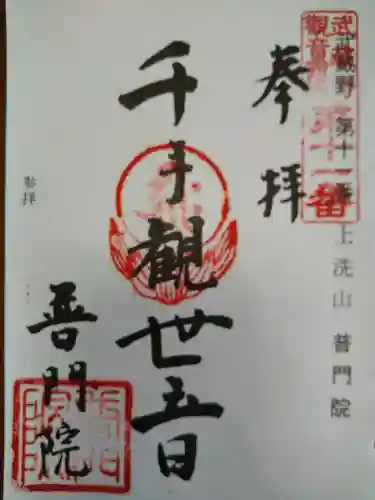 武蔵野 第十一番 上洗山 普門院
第十一番
奉拝
千手觀世音
普門院
参拝